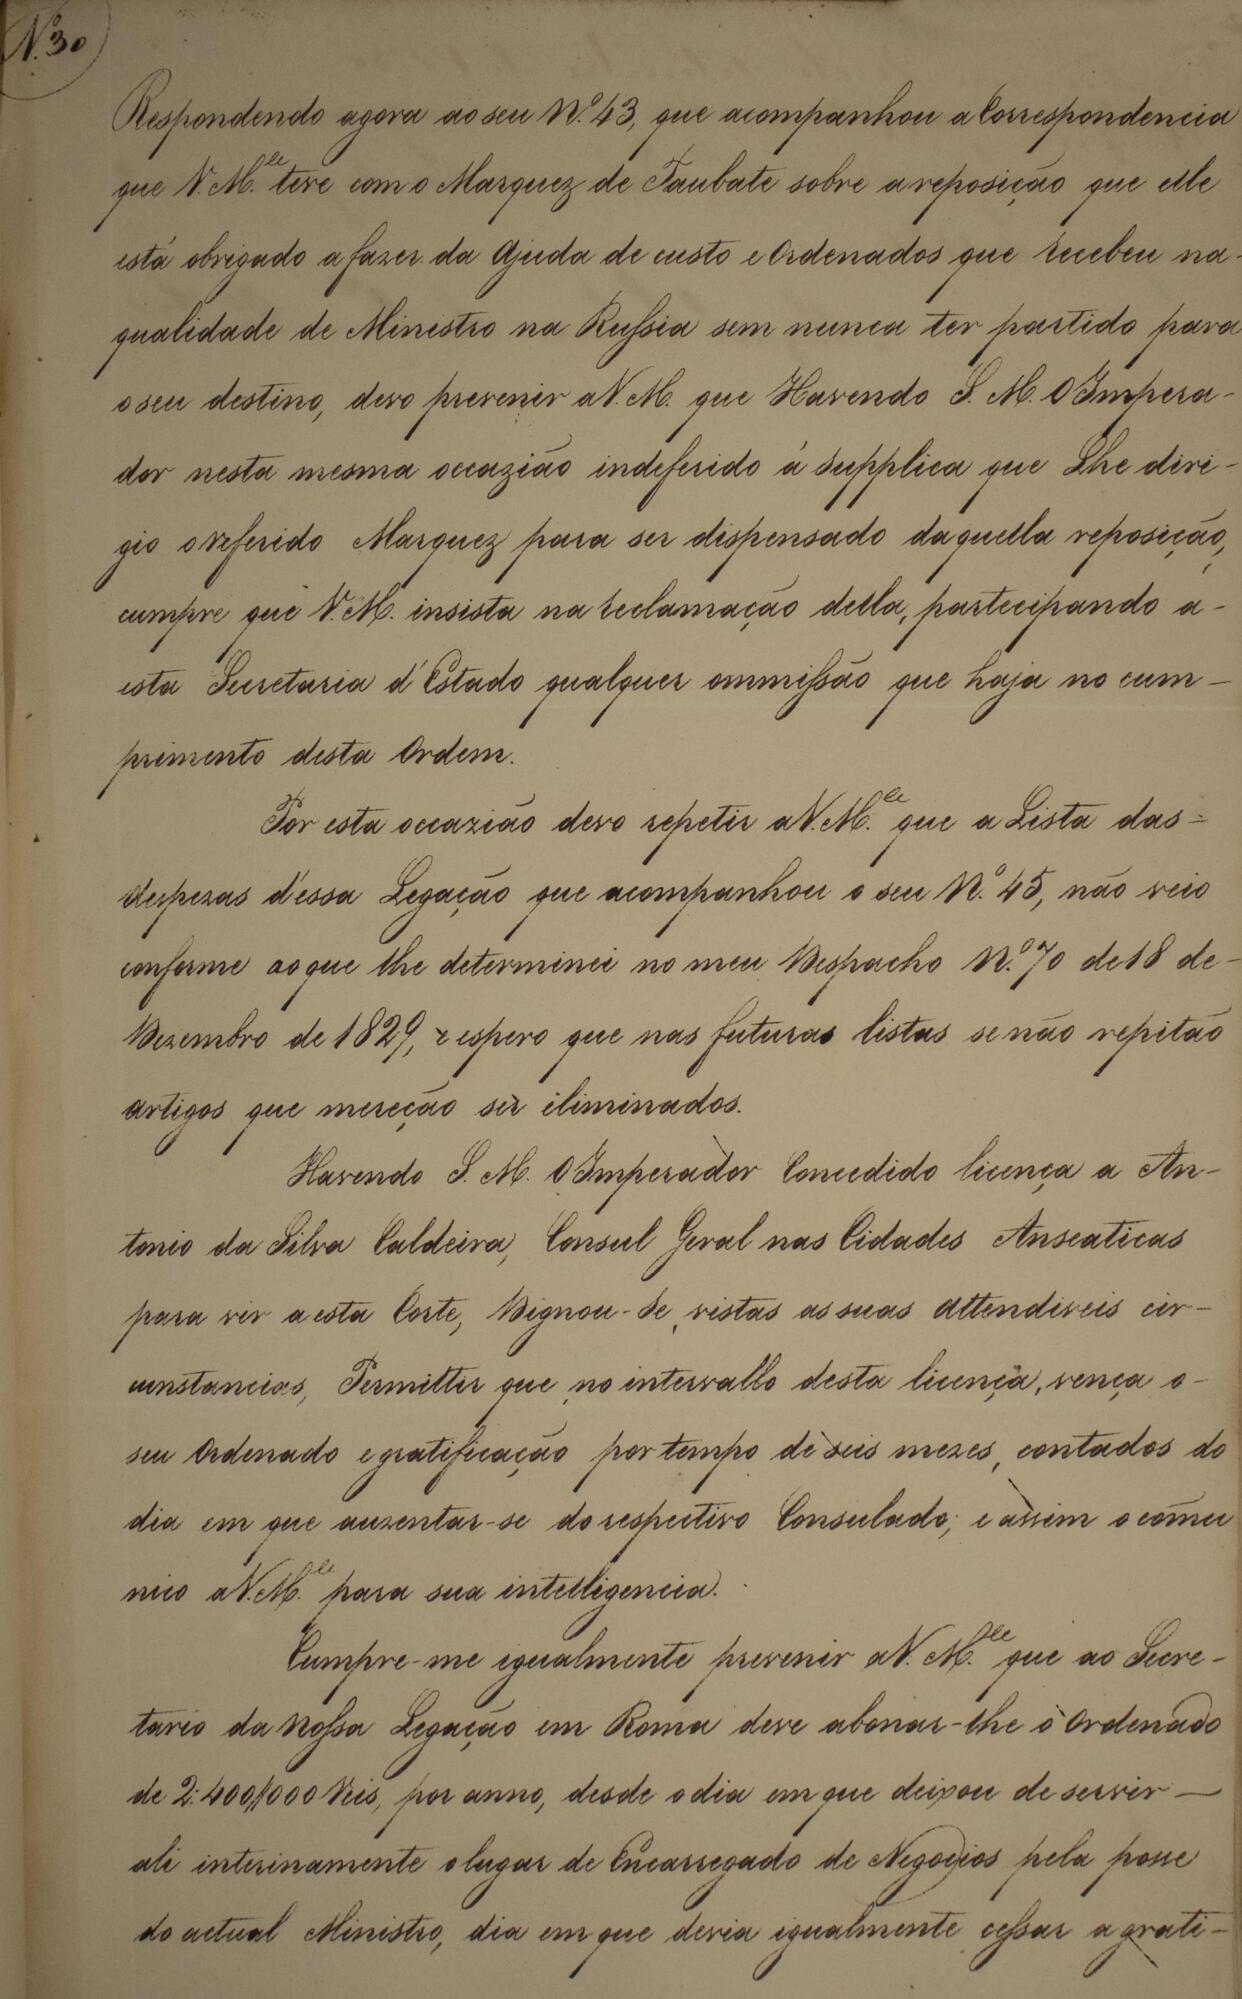 Nº 30
Respondendo agora ao seu Nº. 43, que acompanhou a Correspondencia
que V. M.ce teve com o Marquez de Taubate sobre a reposição que elle
está obrigado a fazer da Ajuda de custo e Ordenados que recebeu na-
qualidade de Ministro na Russia sem nunca ter partido para
o seu destino, devo prevenir a V. M. que Havendo S. M. O Impera-
dor nesta mesma occazião indeferido á supplica que Lhe diri-
gio o referido Marquez para ser dispensado daquella reposição,
cumpre que V. M. insista na reclamação della, partecipando a-
esta Secretaria d'Estado qualquer ommissão que haja no cum-
primento desta Ordem.
Por esta occazião devo repetir a V. M.ce que a Lista das-
despezas d'essa Legação que acompanhou o seu Nº. 45, não veio
conforme ao que lhe determinei no meu Despacho Nº. 70 de 18 de-
Dezembro de 1829, e espero que nas futuras listas se não repitão
artigos que mereção ser iliminados.
Havendo S. M. O Imperador Concedido licença a An-
tonio da Silva Caldeira, Consul Geral nas Cidades Anseaticas
para vir a esta Corte, Dignou-Se, vistas as suas attendiveis cir-
cunstancias, Permittir que no intervallo desta licença, vença o-
seu Ordenado e gratificação por tempo de seis mezes, contados do
dia em que auzentar-se do respectivo Consulado; e assim o comu
nico a V. M.ce para sua intelligencia.
Cumpre-me igualmente prevenir a V. M.ce que ao Secre-
tario da Nossa Legação em Roma deve abonar-lhe o Ordenado
de 2:400$000 Reis, por anno, desde o dia em que deixou de servir-
ali interinamente o lugar de Encarregado de Negocios pela posse
do actual Ministro, dia em que devia igualmente cessar a grati-